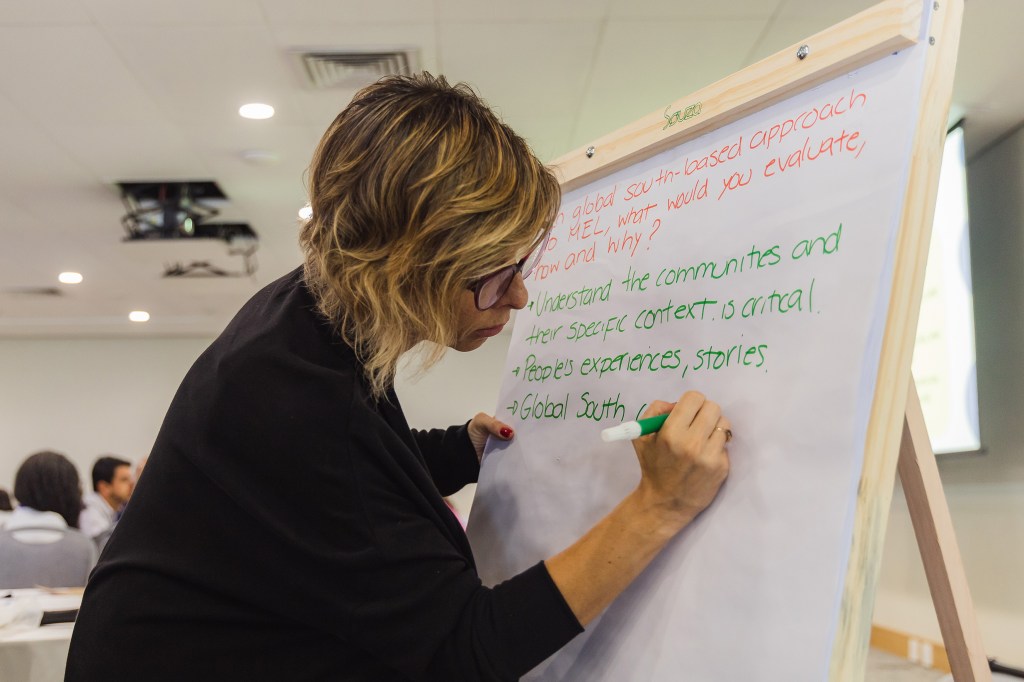 Souza
n global south-based approach
to MEL, what would you evaluate,
how and why?
→ Understand the communities and
their specific context is critical.
→ People's experiences, stories.
→ Global South